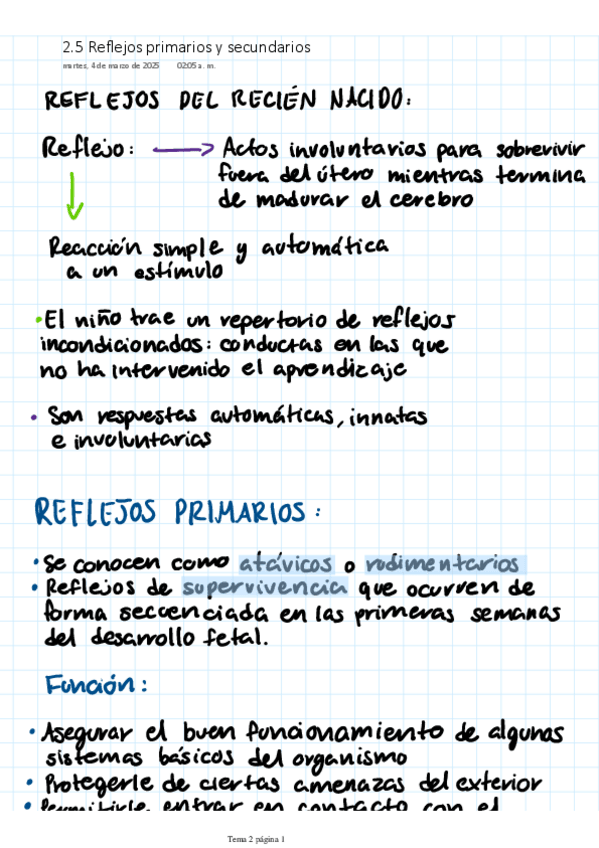 2.5 Reflejos primarios y secundarios
martes, 4 de marzo de 2025 02:05 a. m.
REFLEJOS DEL RECIÉN NACIDO:
Reflejo: → Actos involuntarios para sobrevivir
fuera del útero mientras termina
de madurar el cerebro
Reacción simple y automática
a un estímulo
•El niño trae un repertorio de reflejos
incondicionados: conductas en las que
no ha intervenido el aprendizaje
• Son respuestas automáticas, innatas
e involuntarias
REFLEJOS PRIMARIOS:
• Se conocen como atávicos o rudimentarios
• Reflejos de supervivencia que ocurren de
forma secuenciada en las primeras semanas
del desarrollo fetal.
Función:
• Asegurar el buen funcionamiento de algunos
sistemas básicos del organismo
• Protegerle de ciertas amenazas del exterior
• Permitirle entrar en contacto con el
Tema 2 página 1